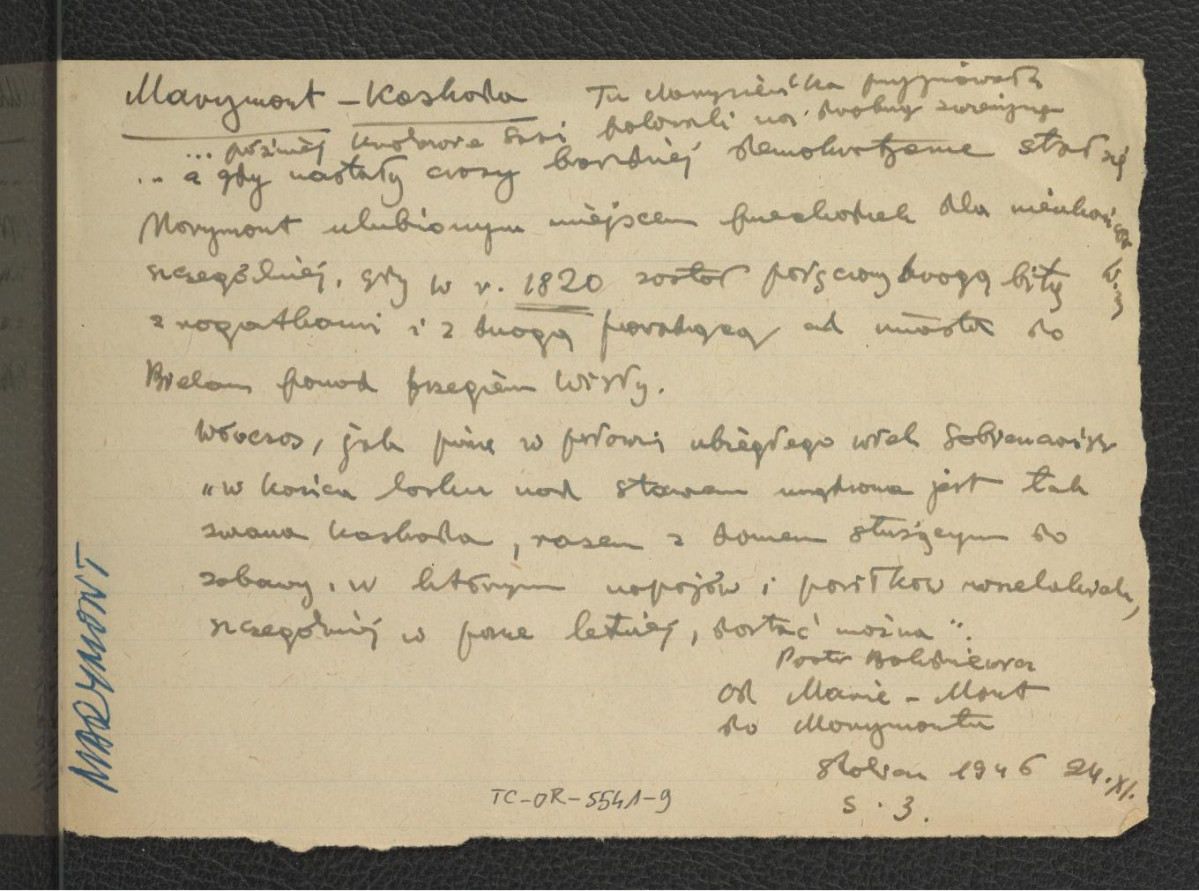 Marymont – Kaskada Tu Marysieńka przyjmowała
... później królowie Sasi polowali na drobną zwierzynę
... a gdy nastały czasy bardziej demokratyczne stał się
Marymont ulubionym miejscem przechadzek dla mieszkańców
szczególniej, gdy w r. 1820 został połączony drogą bitą
z rogatkami i z drogą prowadzącą od miasta do
Bielan ponad brzegiem Wisły.
Wówczas, jak pisze w połowie ubiegłego wieku Sobieszczański
"w końcu lasku nad stawem urządzona jest tak
zwana Kaskada, razem z domem służącym do
zabawy, w którym napojów i posiłków wszelakich,
szczególniej w porze letniej, dostać można".
Piotr
Od Marie – Mont
do Marymontu
Stolica 1946 24.XI.
s. 3.
MARYMONT
TC-OR-5541-9